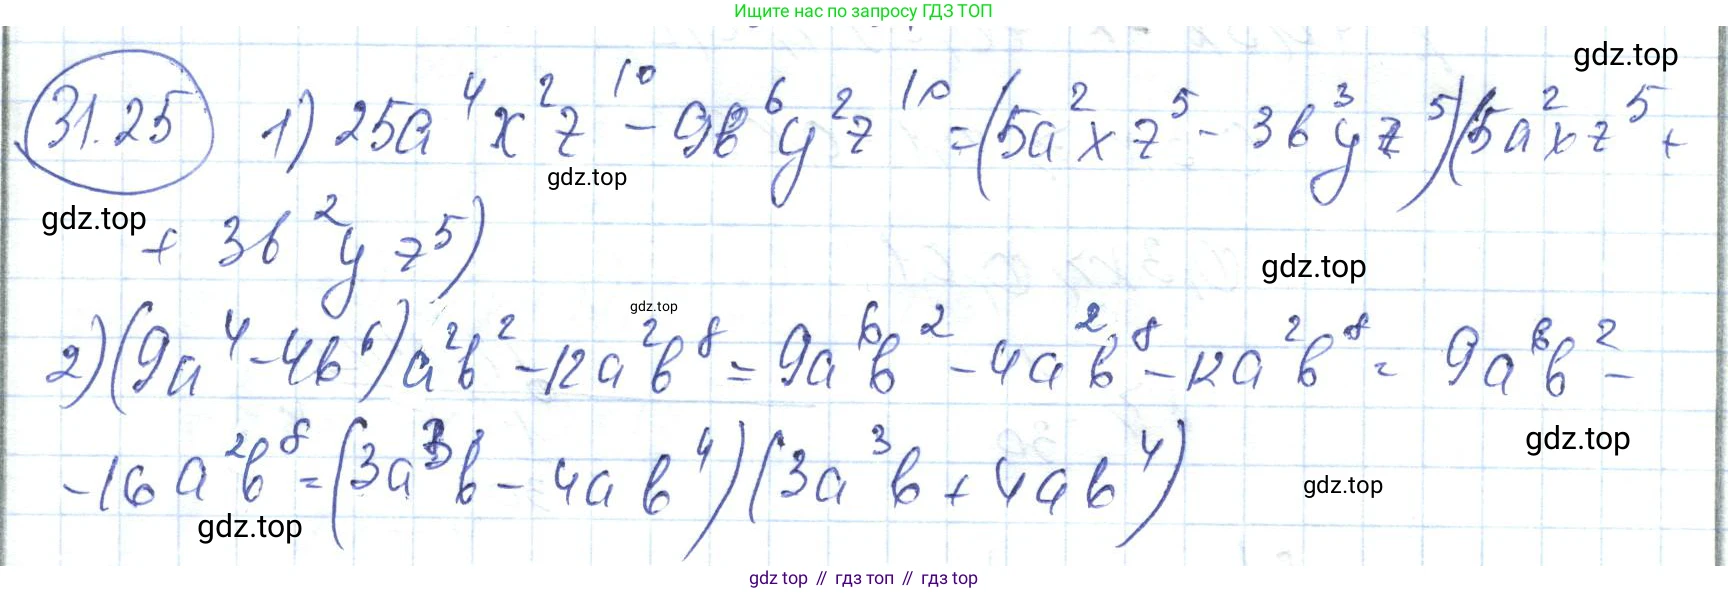 Ищите нас по запросу ГДЗ ТОП
gdz.top
31.25 1) 25a⁴x²z¹⁰ - 9b⁶y²z¹⁰ = (5a²xz⁵ - 3b³yz⁵)(5a²xz⁵ +
gdz.top
gdz.top
+ 3b²yz⁵)
gdz.top
gdz.top
2) (9a⁴ - 4b⁶)a²b² - 12a²b⁸ = 9a⁶b² - 4a²b⁸ - 12a²b⁸ = 9a⁶b² -
gdz.top
- 16a²b⁸ = (3a³b - 4ab⁴)(3a³b + 4ab⁴)
gdz.top
gdz.top
gdz top // гдз топ // гдз top